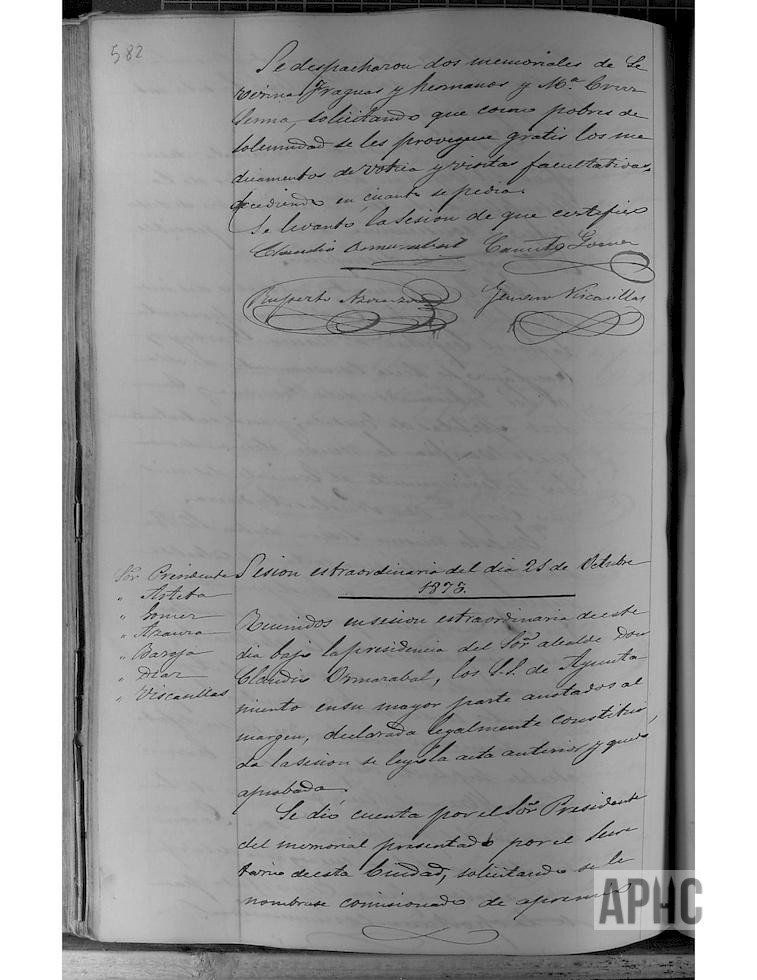 582
Se despacharon dos memoriales de Se
verina Fraguas y hermanas y Mª Cruz
Serna, solicitando que como pobres de
solemnidad se les proveyese gratis los me
dicamentos de votica y visitas facultativas,
accediendo en cuanto se pedia.
Se levanto la sesion de que certifico
Claudio Canuto Gomez
Ruperto Genaro Viscasillas
Sesion estraordinaria del dia 21 de Octubre
1875.
Sor. Presidente
" Arteba
" Gomez
" Azaura
" Baroja
" Diaz
" Viscasillas
Reunidos en sesion estraordinaria de este
dia bajo la presidencia del Sor. alcalde Don
Claudio Ormazabal, los S.S. de Ayunta
miento en su mayor parte anotados al
margen, declarada legalmente constitui
da la sesion se leyo la acta anterior y quedo
aprobada.
Se dió cuenta por el Sor. Presidente
del memorial presentado por el Secre
tario de esta Ciudad, solicitando se le
nombrase comisionado de apremio
APHC